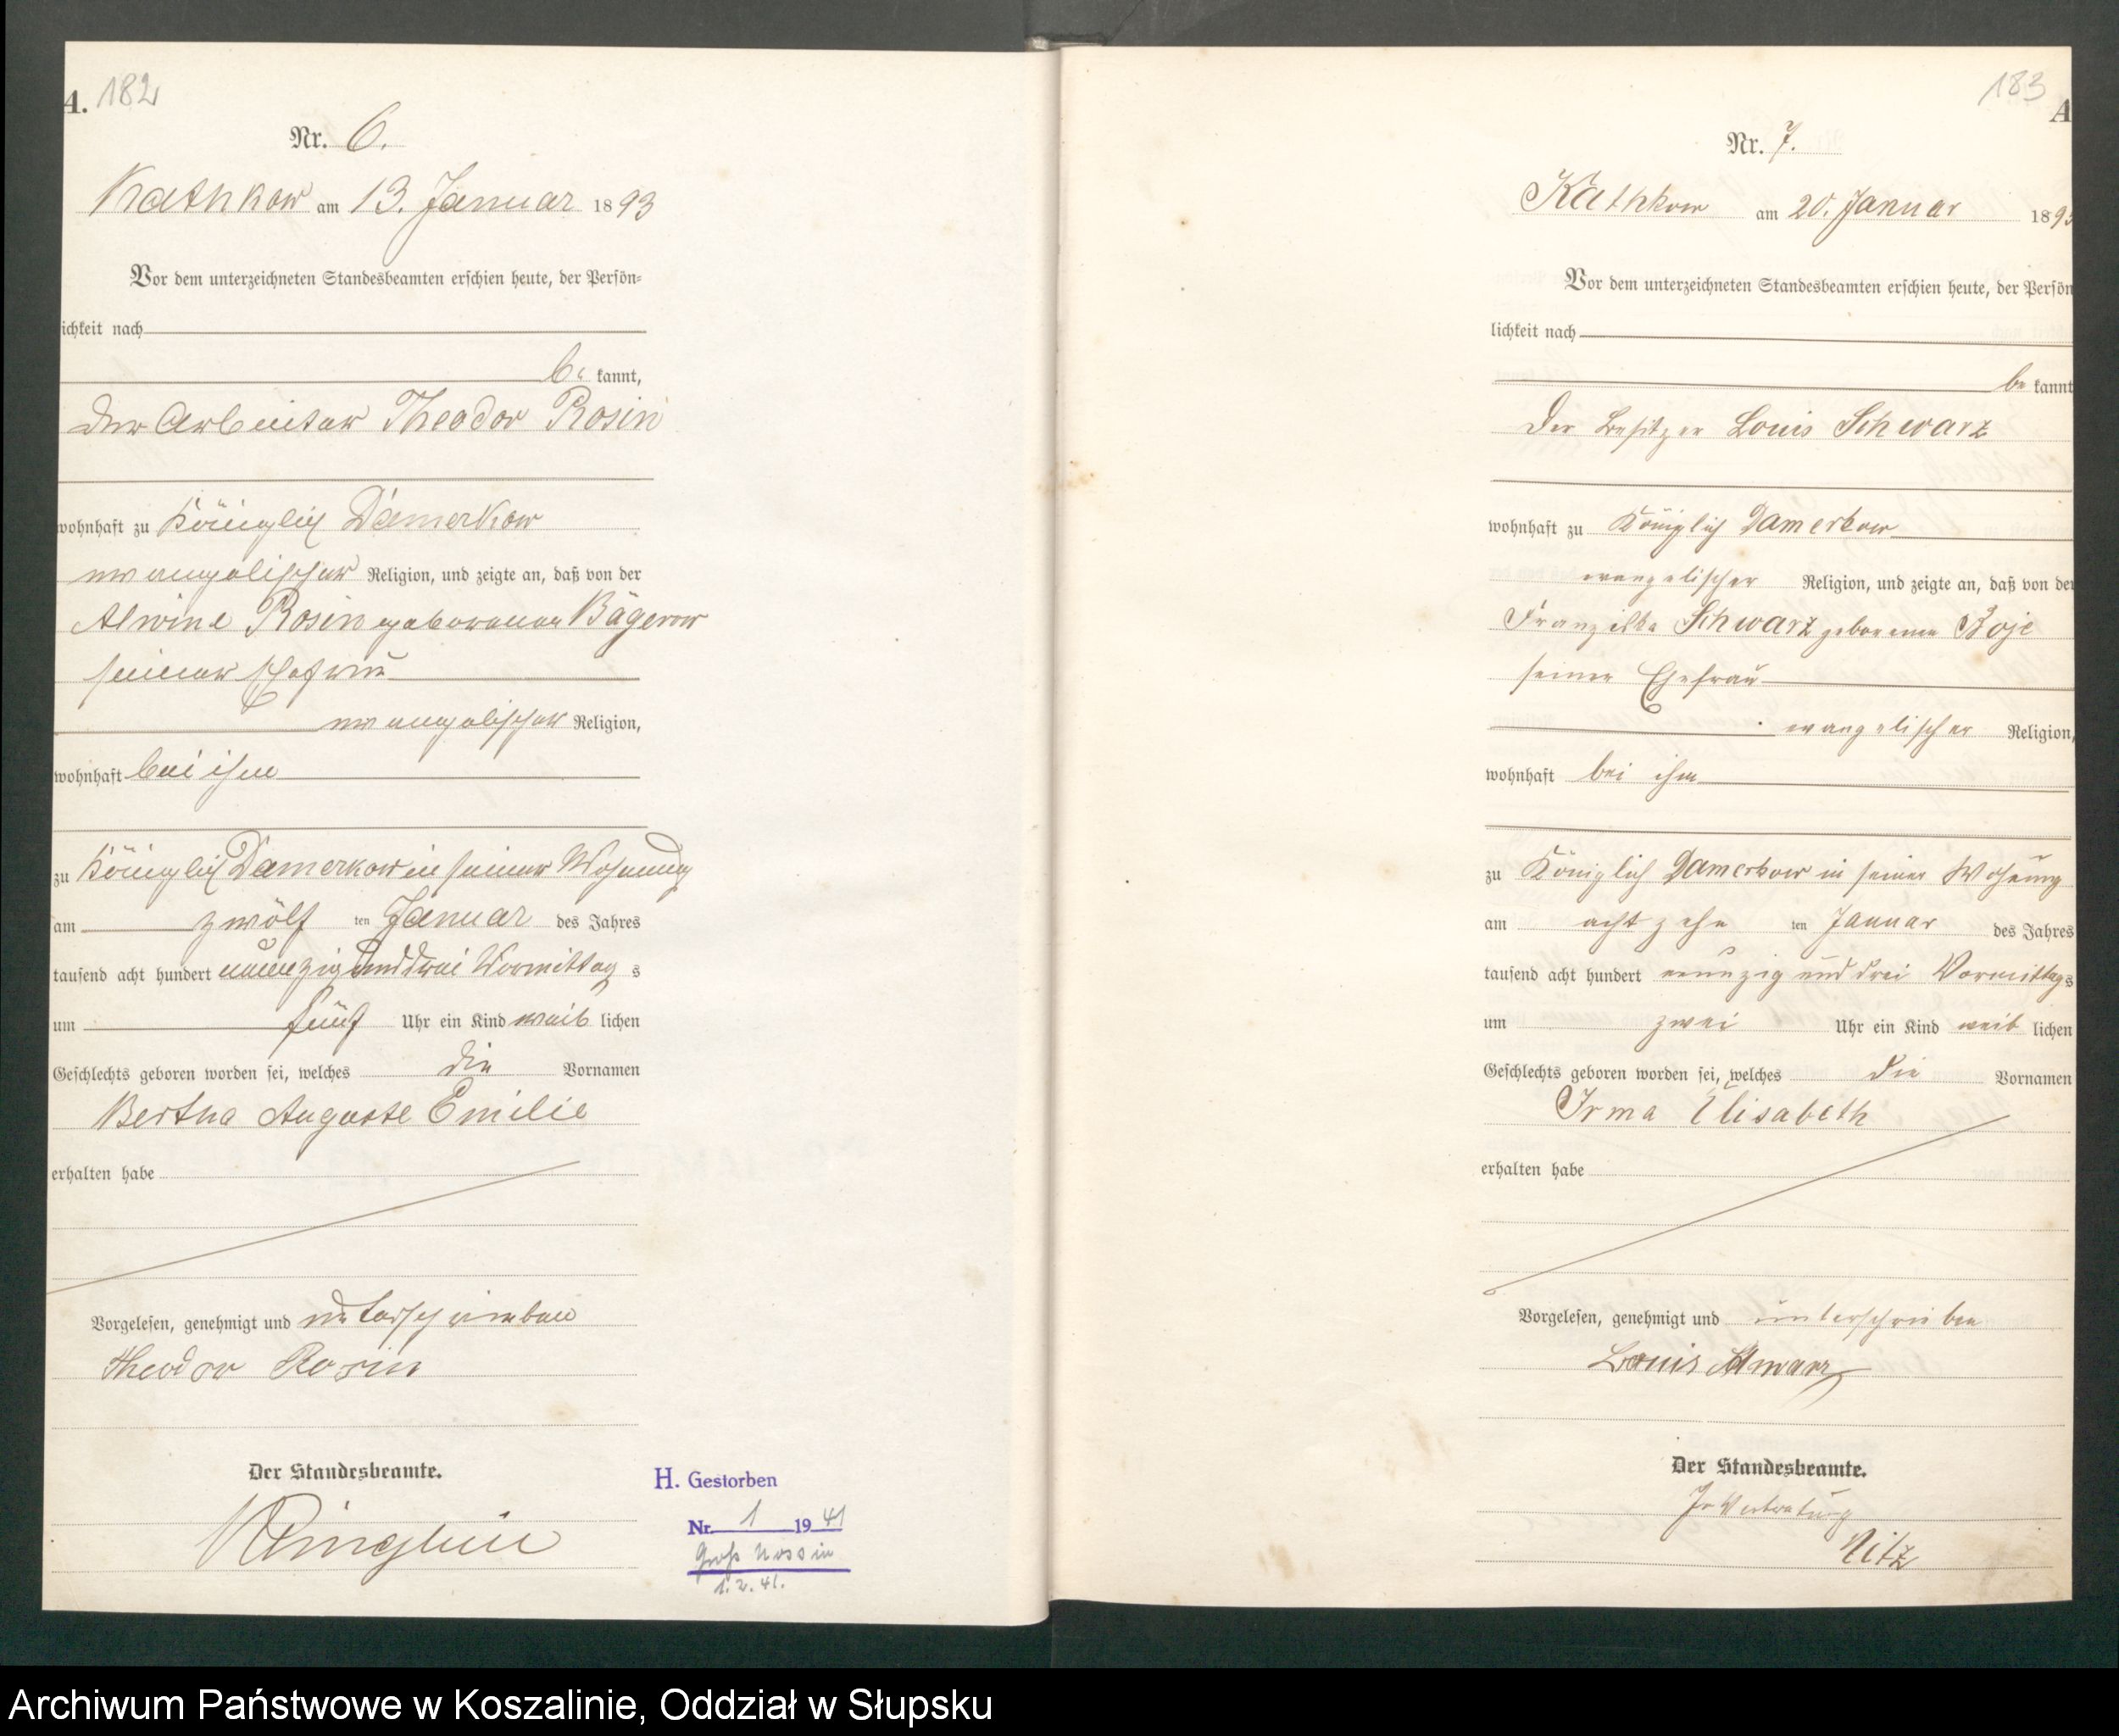 A.
182
Nr. 6.
Kathkow am 13. Januar 1893
Vor dem unterzeichneten Standesbeamten erschien heute, der Persön-
lichkeit nach
be kannt,
der Arbeiter Theodor Rosin
wohnhaft zu Königlich Damerkow
evangelischer Religion, und zeigte an, daß von der
Alwine Rosin geborenen Bägerow
seiner Ehefrau
evangelischer Religion,
wohnhaft bei ihm
zu Königlich Damerkow in seiner Wohnung
am zwölf ten Januar des Jahres
tausend acht hundert neunzig und drei Vormittag s
um fünf Uhr ein Kind weib lichen
Geschlechts geboren worden sei, welches die Vornamen
Bertha Auguste Emilie
erhalten habe
Vorgelesen, genehmigt und unterschrieben
Theodor Rosin
Der Standesbeamte.
H. Gestorben
Nr. 1 1941
Groß Nossin
1.2.41.
183
A
Nr. 7.
Kathkow am 20. Januar 189
Vor dem unterzeichneten Standesbeamten erschien heute, der Persön
lichkeit nach
be kannt
Der Besitzer Louis Schwarz
wohnhaft zu Königlich Damerkow
evangelischer Religion, und zeigte an, daß von der
Franziska Schwarz geborenen Boje
seiner Ehefrau
evangelischer Religion,
wohnhaft bei ihm
zu Königlich Damerkow in seiner Wohnung
am acht zehn ten Januar des Jahres
tausend acht hundert neunzig und drei Vormittags
um zwei Uhr ein Kind weib lichen
Geschlechts geboren worden sei, welches die Vornamen
Irma Elisabeth
erhalten habe
Vorgelesen, genehmigt und unterschrieben
Louis Schwarz
Der Standesbeamte.
In Vertretung
Nitz
Archiwum Państwowe w Koszalinie, Oddział w Słupsku